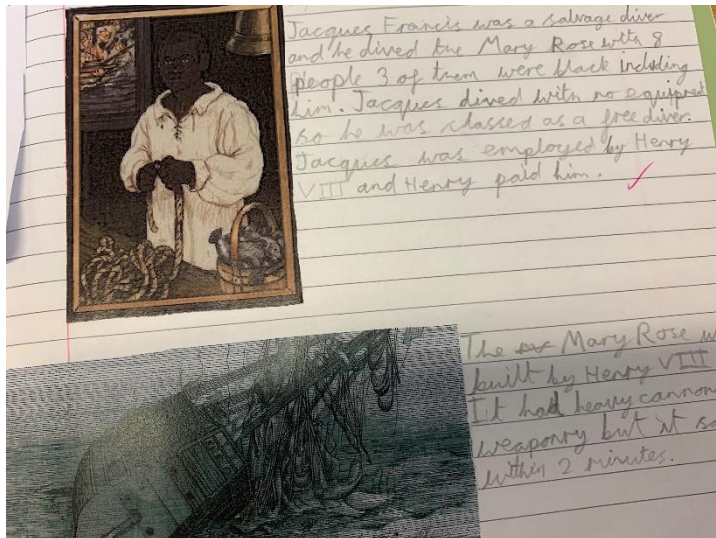 Jacques Francis was a salvage diver
and he dived the Mary Rose with 8
people 3 of them were black including
him. Jacques dived with no equipment
so he was classed as a free diver.
Jacques was employed by Henry
VIII and Henry paid him.
The Mary Rose w
built by Henry VIII
It had heavy cannon
weaponry but it sa
within 2 minutes.